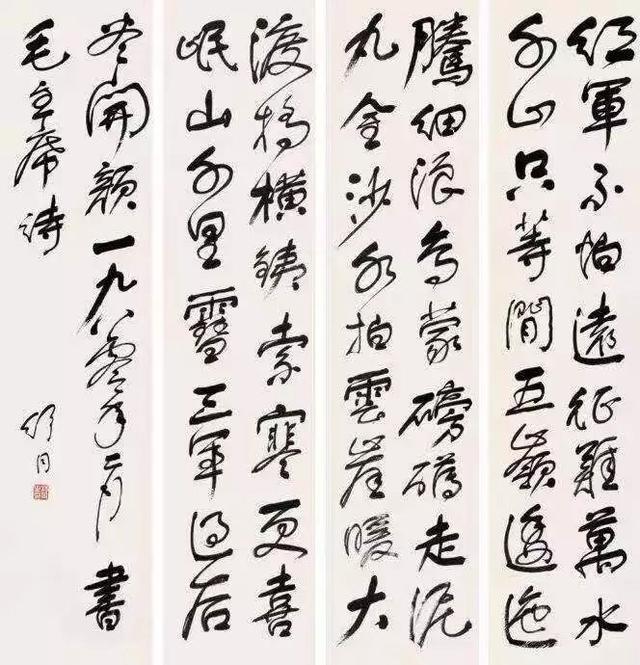 紅軍不怕遠征難萬水
千山只等閒五嶺逶迤
騰細浪烏蒙磅礴走泥
丸金沙水拍雲崖暖大
渡橋橫鐵索寒更喜
岷山千里雪三軍過后
盡開顏一九八零年二月書
毛主席詩
舒同